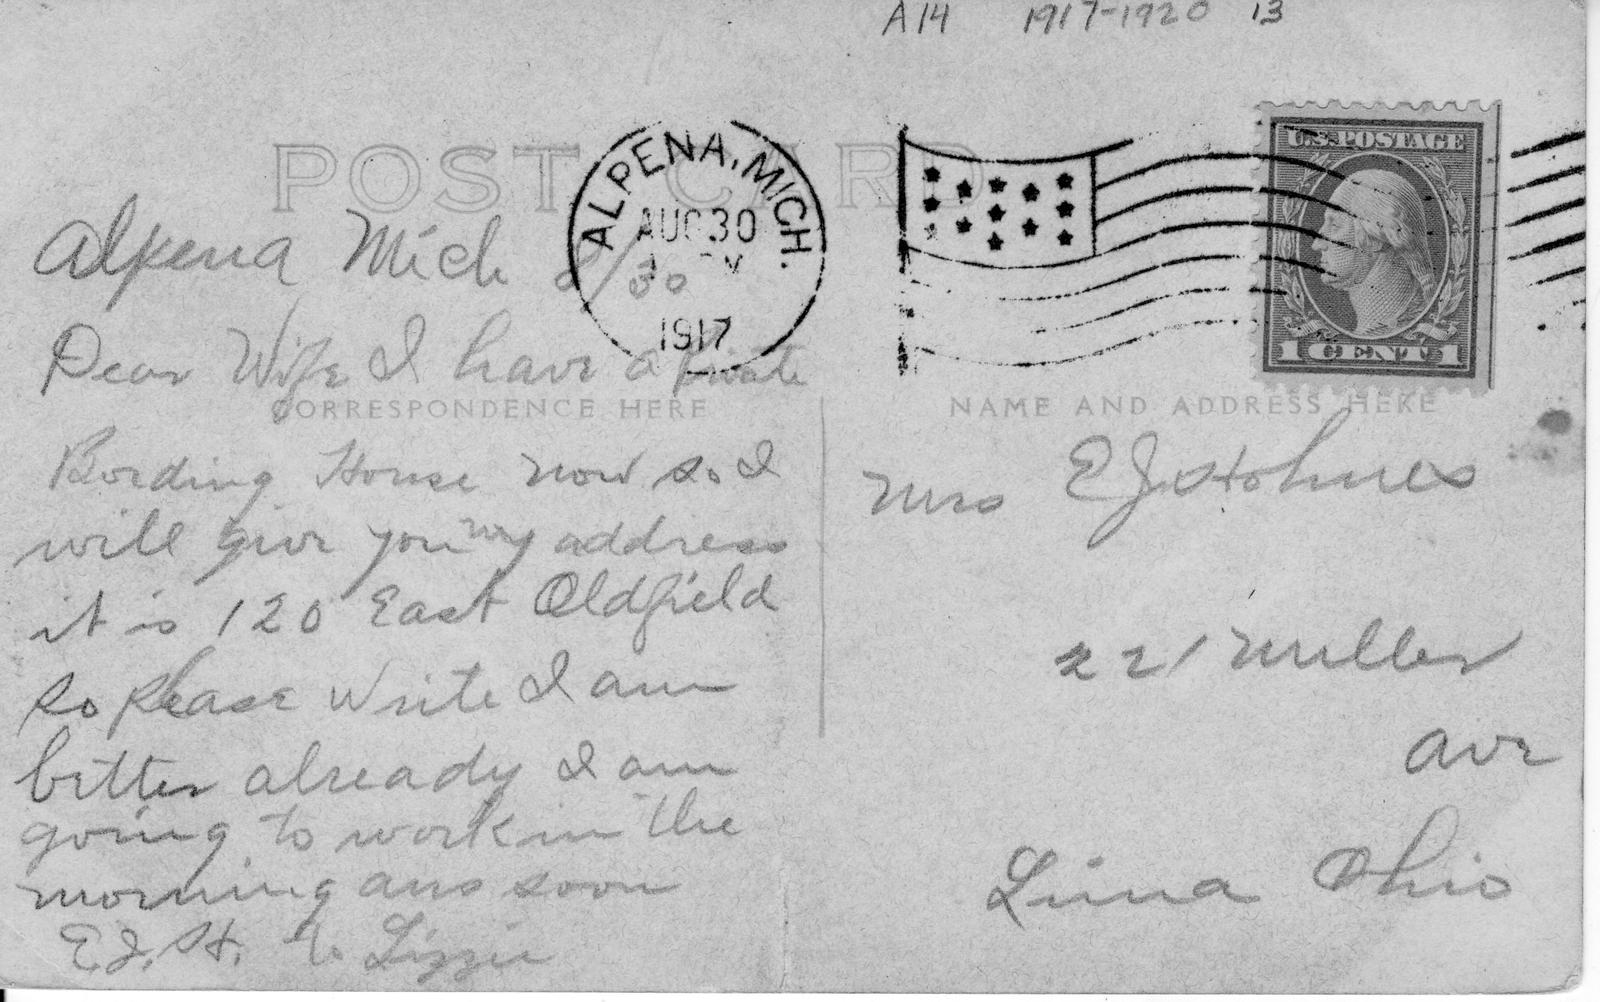 A14 1917-1920 13
POST CARD
ALPENA, MICH.
AUG 30
1917
U.S. POSTAGE
1 CENT 1
Alpena Mich 8/30
Dear Wife I have a private
CORRESPONDENCE HERE
Bording House now so I
will give you my address
it is 120 East Oldfield
so please write I am
better already I am
going to work in the
morning ans soon
E.J.H. to Lizzie
NAME AND ADDRESS HERE
Mrs E J Holmes
221 Miller
ave
Lima Ohio